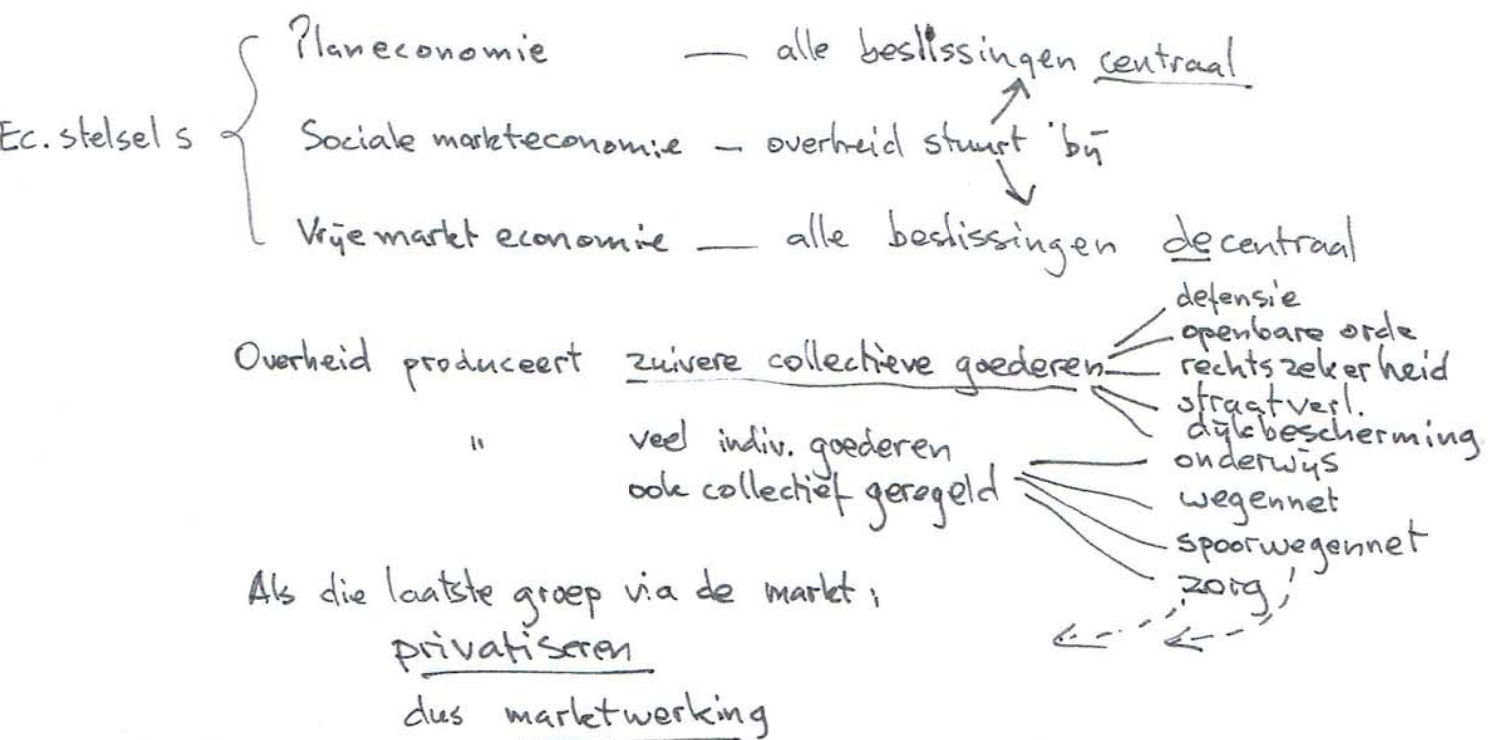 Planeconomie — alle beslissingen centraal
Ec. stelsels
Sociale markteconomie – overheid stuurt bij
Vrije markt economie — alle beslissingen decentraal
Overheid produceert zuivere collectieve goederen
defensie
openbare orde
rechtszekerheid
straatverl.
dijkbescherming
" veel indiv. goederen
ook collectief geregeld
onderwijs
wegennet
spoorwegennet
zorg
Als die laatste groep via de markt;
privatiseren
dus marktwerking